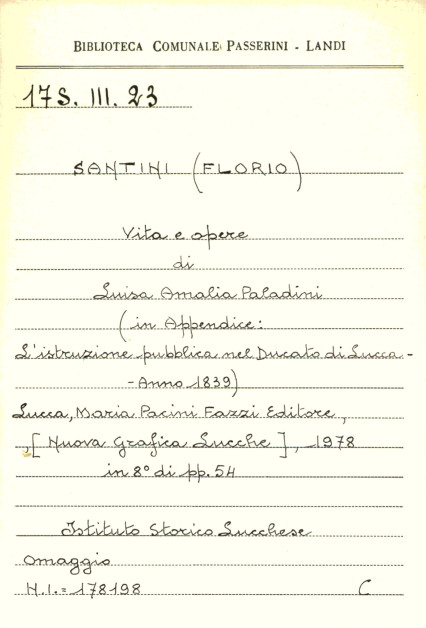 BIBLIOTECA COMUNALE PASSERINI - LANDI
17S. III. 23
SANTINI (FLORIO)
Vita e opere
di
Luisa Amalia Paladini
(in Appendice:
L'istruzione pubblica nel Ducato di Lucca -
- Anno 1839)
Lucca, Maria Pacini Fazzi Editore,
, [Nuova Grafica Lucche], 1978
in 8° di pp. 54
Istituto Storico Lucchese
Omaggio
N.I. = 178198 C